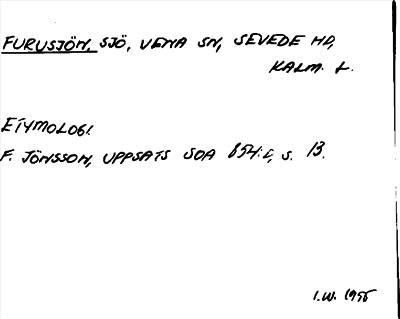 FURUSJÖN, SJÖ, VENA SN, SEVEDE HD,
KALM. L.
ETYMOLOGI.
F. JÖNSSON, UPPSATS SOA 854:2, S. 13.
I.W. 1955